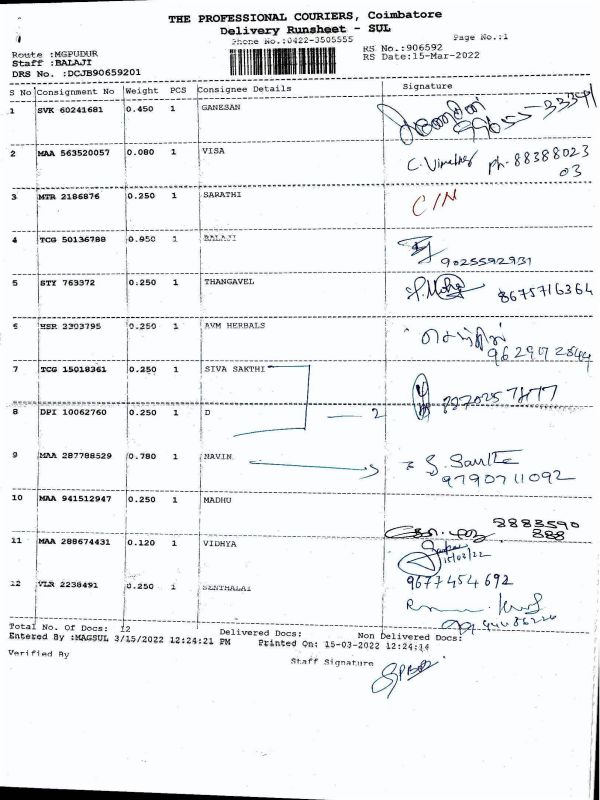 THE PROFESSIONAL COURIERS, Coimbatore
Delivery Runsheet - SUL
Phone No.:0422-3505555
Page No.:1
Route :MGPUDUR
Staff :BALAJI
DRS No. :DCJB90659201
RS No.:906592
RS Date:15-Mar-2022
S No Consignment No Weight PCS Consignee Details Signature
1 SVK 60241681 0.450 1 GANESAN
2 MAA 563520057 0.080 1 VISA ph- 88388023
03
3 MTR 2186876 0.250 1 SARATHI C/N
4 TCG 50136788 0.050 1 BALAJI
9025592931
5 STY 763372 0.250 1 THANGAVEL 8675716364
6 HSR 2303795 0.250 1 AVM HERBALS
9629072844
7 TCG 15018361 0.250 1 SIVA SAKTHI
8 DPI 10062760 0.250 1 D 2
9 MAA 287788529 0.780 1 NAVIN
9790711092
10 MAA 941512947 0.250 1 MADHU 8883590
888
11 MAA 288674431 0.120 1 VIDHYA
15/03/22
9677454692
12 VLR 2238491 0.250 1 SENTHALAI
Total No. Of Docs: 12 Delivered Docs: Non Delivered Docs:
Entered By :MAGSUL 3/15/2022 12:24:21 PM Printed On: 15-03-2022 12:24:14
Verified By Staff Signature